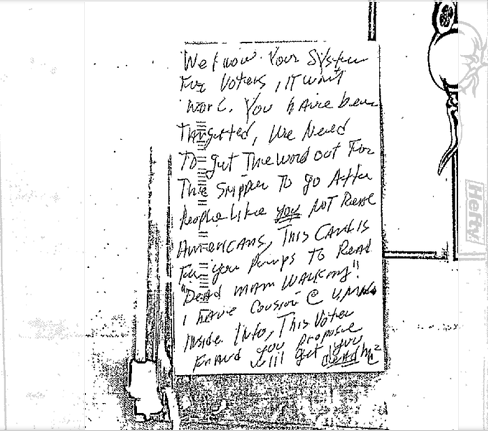 We know Your System
For Voters, IT wont
work. You have been
Targetted, We Need
To get The word out For
The Snipper To go After
People like you NOT Reale
Americans, This Card is
For you Pimps To Read
"Dead man WALKING"
I have Cousin @
Inside Info, This Voter
Fraud you propose
will get you
dead
Hefty